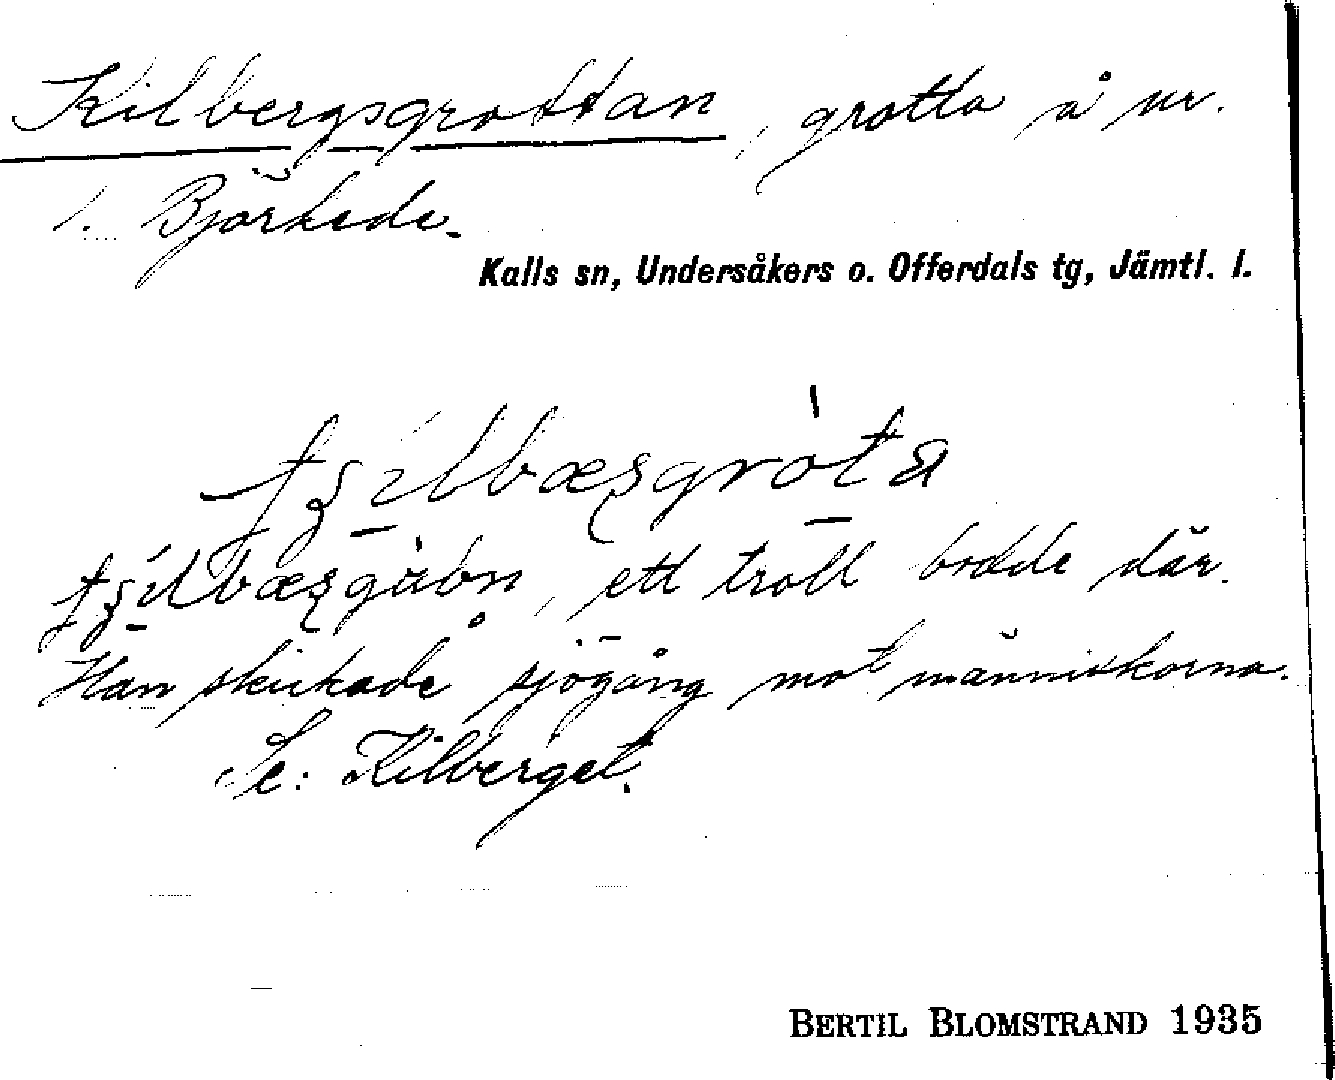 Kilbergsgrottan, grotta å nr.
1. Björkede.
Kalls sn, Undersåkers o. Offerdals tg, Jämtl. l.
tʂílbæʂgròta
tʂílbæʂgùbn, ett troll bodde där.
Han skickade sjögång mot människorna.
Se: Kilberget.
BERTIL BLOMSTRAND 1935